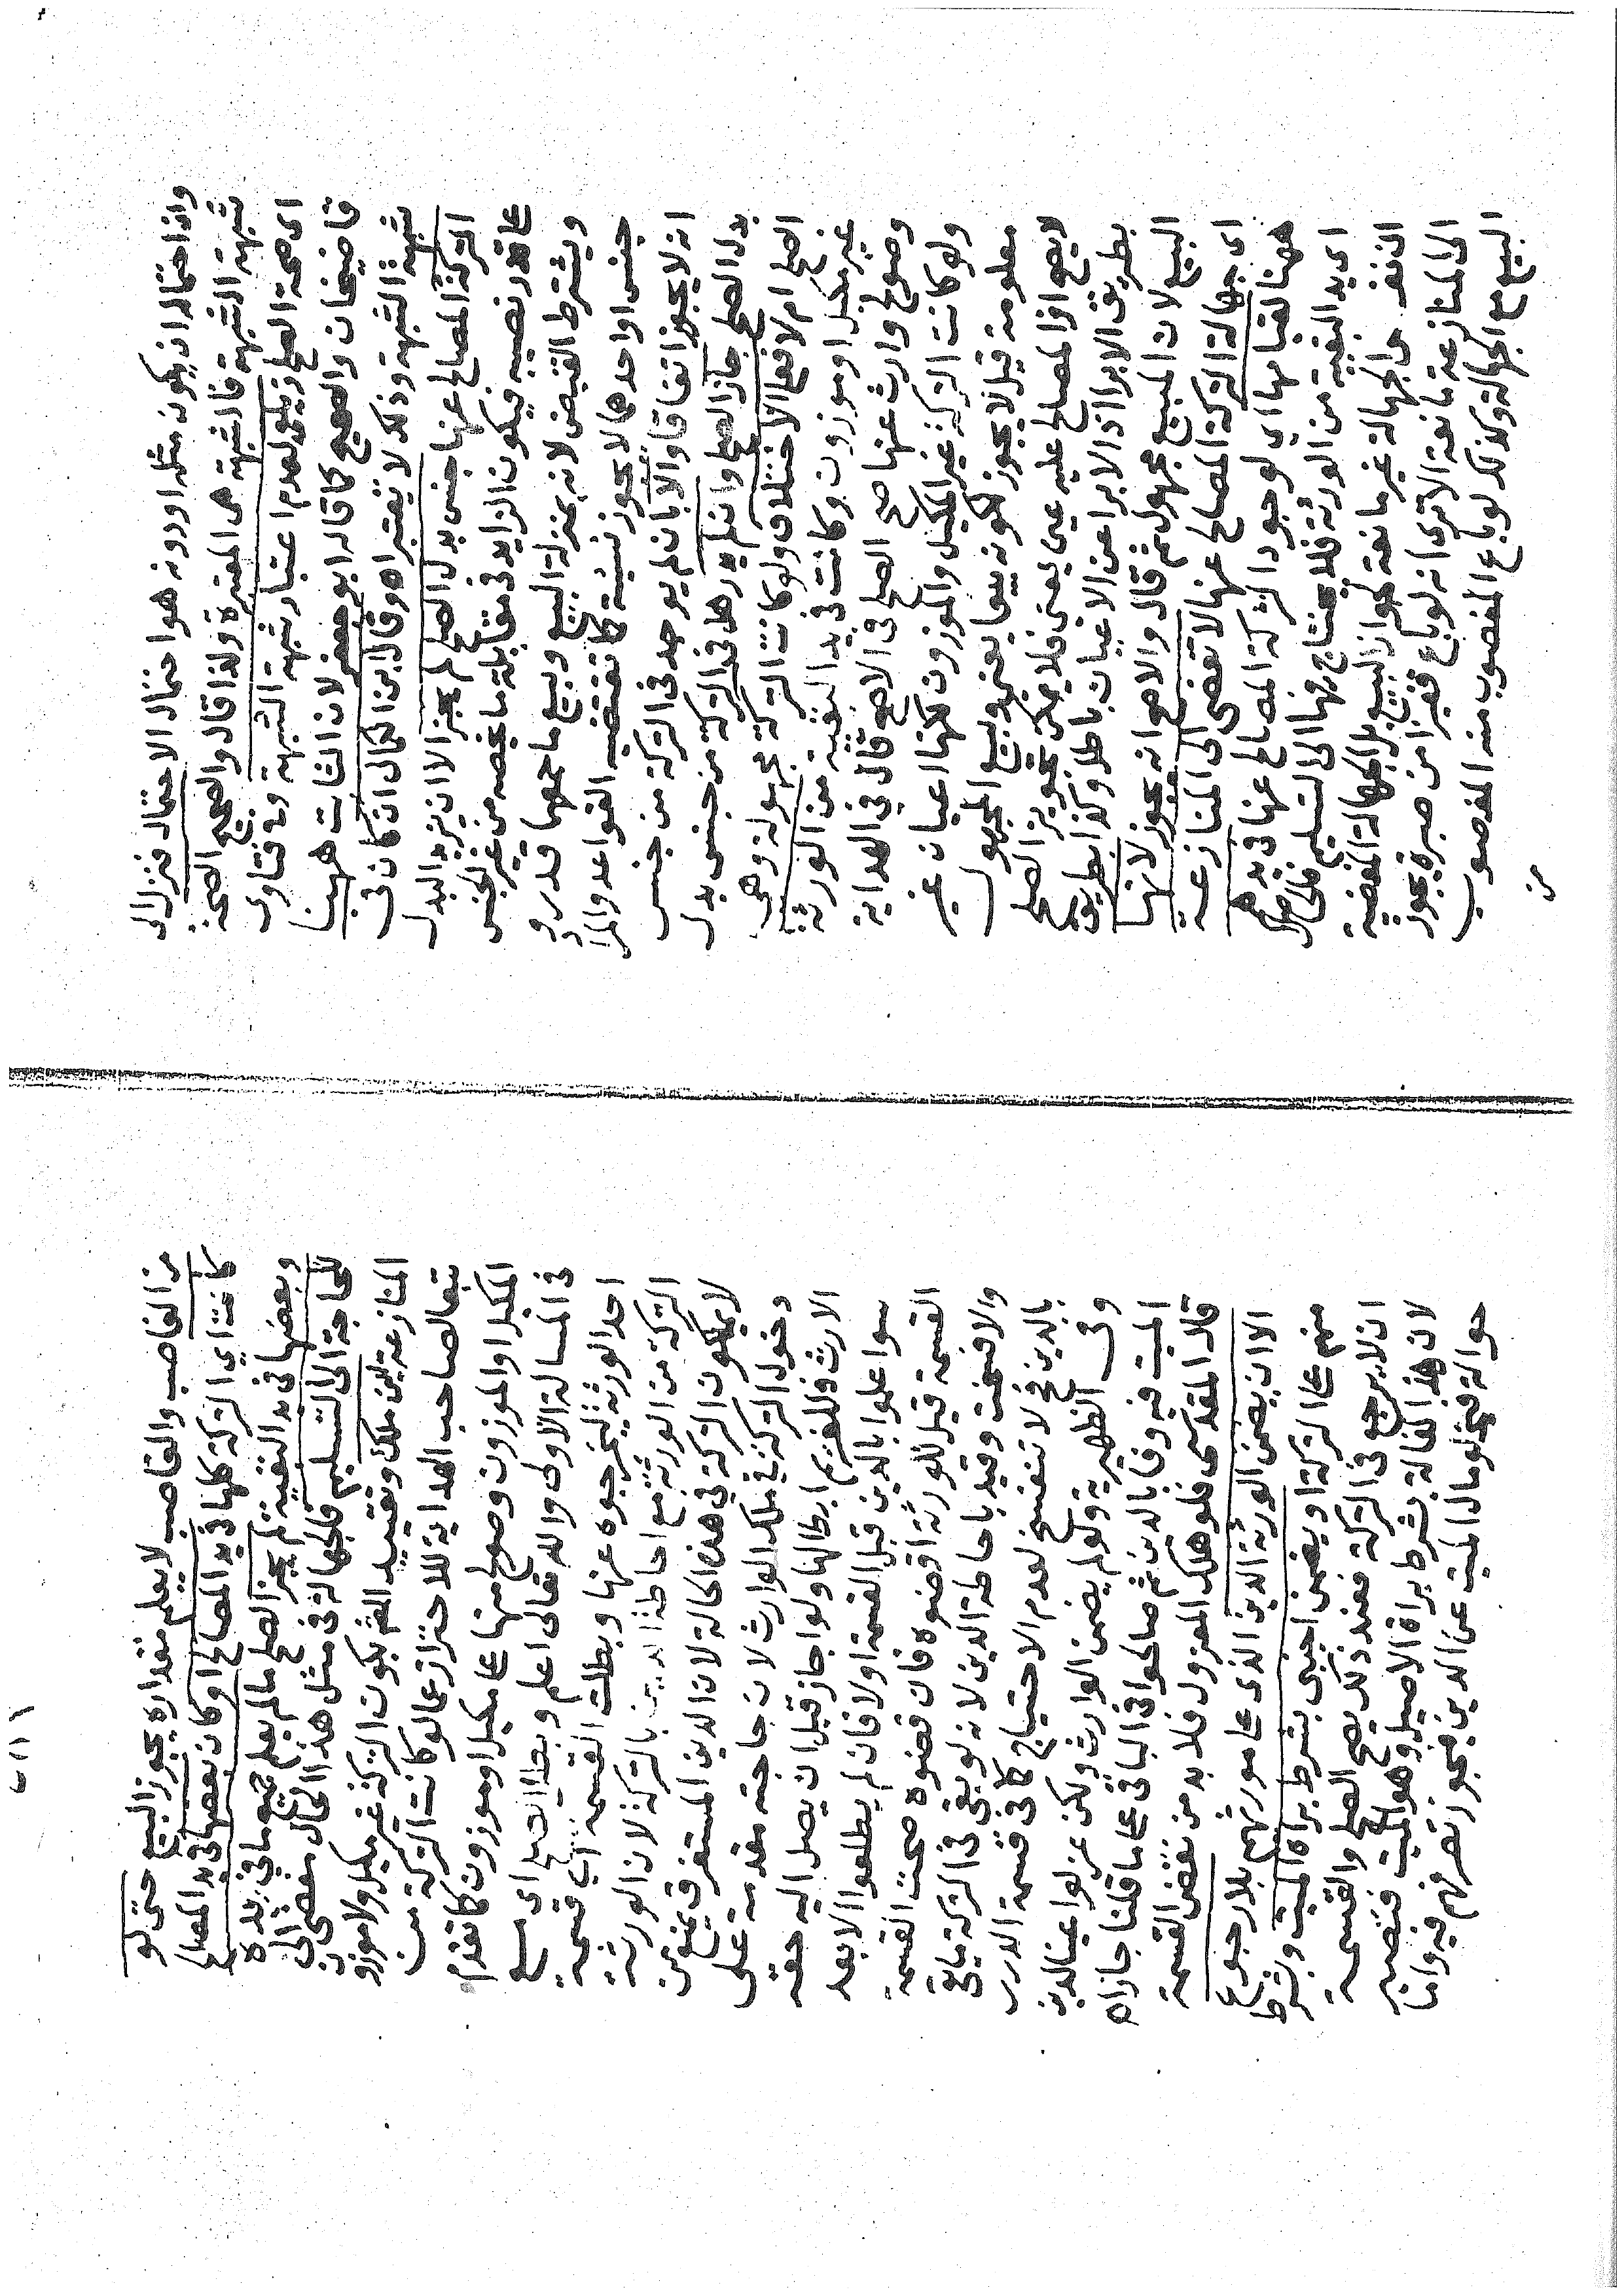 وان احتمال ان يكون مثله اودونه هو احتمال الاحتمال فنزل الى
شبهة الشبهة فالشبهة هي المعتبرة ولذا قال والصحيح الصحة
اي صحة الصلح زيلعي لعدم اعتبار شبهة الشبهة وفي فتاوى
قاضيخان والصحيح كما قاله ابو جعفر لان الثابت ههنا
شبهة الشبهة وذلك لا تعتبر اه وقال ابن الكمال ان كان في
التركة المصالح عنها جنس بدل الصلح لم يجز الا ان يزيد البدل
على قدر نصيبه فيكون الزايد في مقابلة ما يخصه من غير الجنس
ويشترط القبض لانه بمنزلة البيع وبيع ما جمعهما قدر و
جنس اواحدهما لا يجوز نسيئة كما تقتضيه القواعد والمراد
انه لا يجوز اتفاقا والا بان لم يوجد في التركة من جنس
بدل الصلح جاز الصلح وان لم يدر هل في التركة من جنس بدل
الصلح ام لا فعلى الاختلاف ولو كانت التركة مجهولة وهي
غير مكيل اوموزون وكانت في يد البقية من الورثة
وصولح وارث عنها صح الصلح في الاصح قال في الهداية
ولو كانت التركة غير المكيل والموزون لكنها اعيان غير
معلومة قيل لا يجوز لكونه بيعا يعني وبيع المجهول
لا يصح اذ المصالح عليه عين يعني فلا يمكن تجويز الصلح
بطريق الابرا اذ الابرا عن الاعيان باطل وكذا بطريق
البيع لان المبيع مجهول ثم قال والاصح انه يجوز لانها
اي جهالة التركة المصالح عنها لا تفضي الى المنازعة
ههنا لقيامها اي لوجود التركة المصالح عنها في يدهم
اي يد البقية من الورثة فلا يحتاج فيها الى التسليم
نفس الجهالة غير مانعة لجواز البيع بل الجهالة المفضية
الى المنازعة مانعة الاترى انه لوباع قفيزا من صبرة يجوز
البيع مع الجهالة وكذلك لوباع المغصوب منه المغصوب
من
من الغاصب والغاصب لا يعلم مقداره يجوز البيع حتى لو
كانت اي التركة كلها في يد المصالح اوكان بعضها في يد المصالح
وبعضها في يد البقية لم يجز الصلح مالم يعلم جميع ما في يده
للحاجة الى التسليم فالجهالة في مثل هذا الحال مفضى الى
المنازعة ابن ملك وتقييد المص بكون التركة غير مكيل ولا موزون
تبعا لصاحب الهداية للاحتراز عما لو كانت التركة من
المكيل او الموزون وصولح منها على مكيل اوموزون كما تقدم
في المسالة الاولى والله تعالى اعلم وبطل الصلح اي صلح
احد الورثة ليخرجوه عنها وبطلت القسمة اي قسمة
التركة من الورثة مع احاطة الدين بالتركة لان الورثة
لا يملكون التركة في هذه الحالة لان الدين المستغرق يمنع من
دخول التركة في ملك الوارث لان حاجته مقدمة على
الارث فللغريم ابطالها ولو اجاز قبل ان يصل اليه حقه
سوا علموا بالدين قبل القسمة اولا فان لم يطلعوا الابعد
القسمة قيل للورثة اقضوه فان قضوه صحت القسمة
والا فسخت وقيد باحاطة الدين لانه لو بقي في التركة مايفي
بالدين فح لا تنفسخ لعدم الاحتياج كما في قسمة الدرر
وفي الظهيرية ولو لم يضمن الوارث ولكن عزلوا عينا لدين
الميت فيه وفا بالدين ثم صالحوا في الباقي على ما قلنا جاز اه
قال المقدسي فلو هلك المعزول فلا بد من نقض القسمة
الا ان يضمن الورثة الدين الذي على مورثهم بلا رجوع
منهم على التركة اويضمن اجنبي بشرط براة الميت وبشرط
ان لا يرجع في التركة فعند ذلك يصح الصلح والقسمة
لان هذه الكفالة بشرط براة الاصيل وهو الميت فتصير
حوالة فيخلو مال الميت عن الدين فيجوز تصرفهم فيه واما